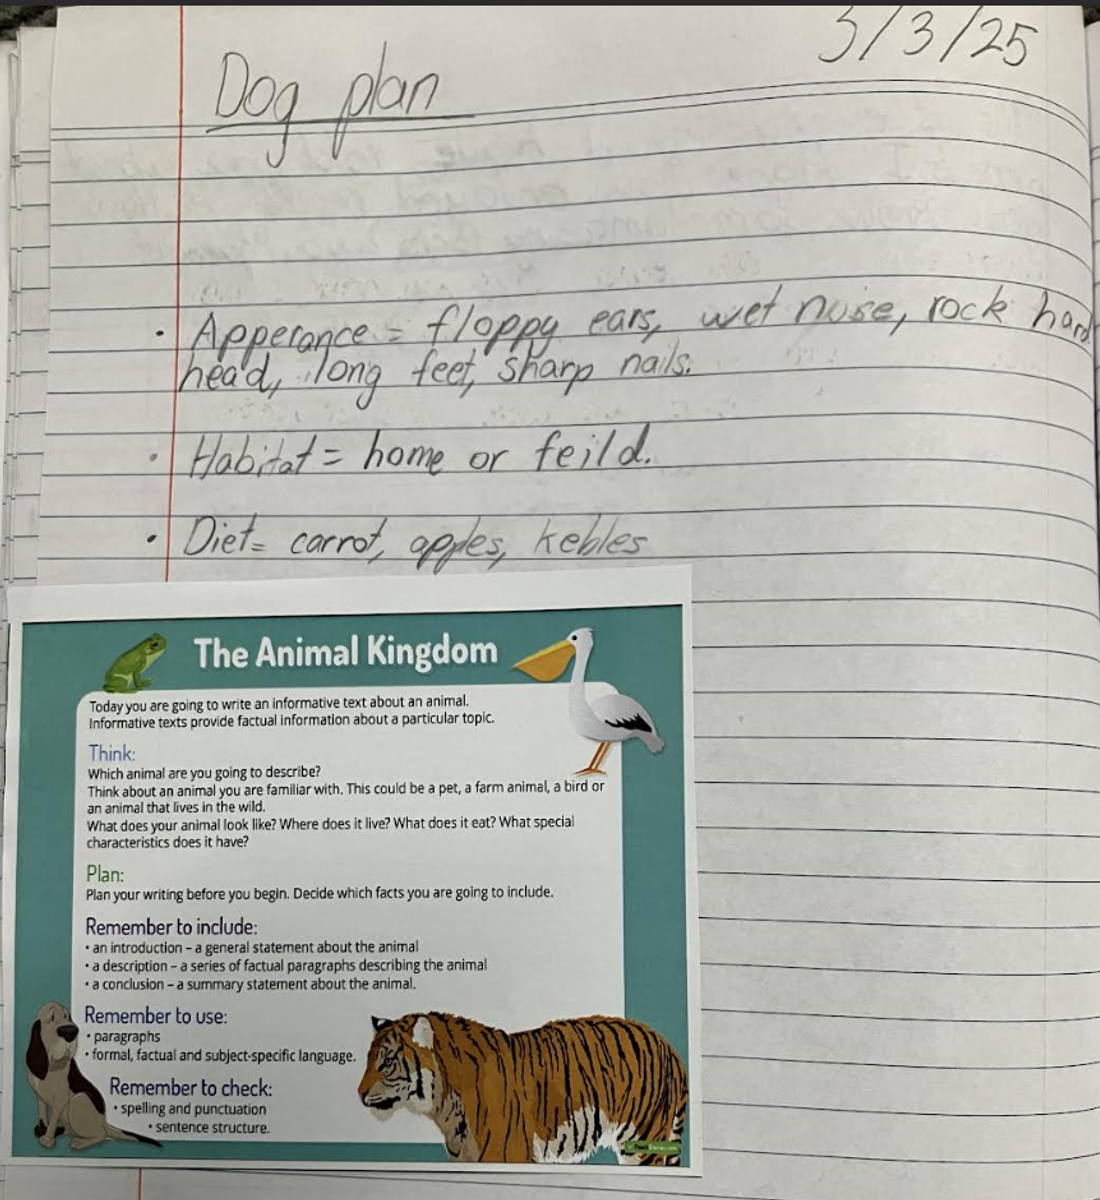 5/3/25
Dog plan
• Apperance = floppy ears, wet nose, rock hard
head, long feet, sharp nails.
• Habitat = home or feild.
• Diet = carrot, apples, kebles
The Animal Kingdom
Today you are going to write an informative text about an animal.
Informative texts provide factual information about a particular topic.
Think:
Which animal are you going to describe?
Think about an animal you are familiar with. This could be a pet, a farm animal, a bird or
an animal that lives in the wild.
What does your animal look like? Where does it live? What does it eat? What special
characteristics does it have?
Plan:
Plan your writing before you begin. Decide which facts you are going to include.
Remember to include:
• an introduction – a general statement about the animal
• a description – a series of factual paragraphs describing the animal
• a conclusion – a summary statement about the animal.
Remember to use:
• paragraphs
• formal, factual and subject-specific language.
Remember to check:
• spelling and punctuation
• sentence structure.